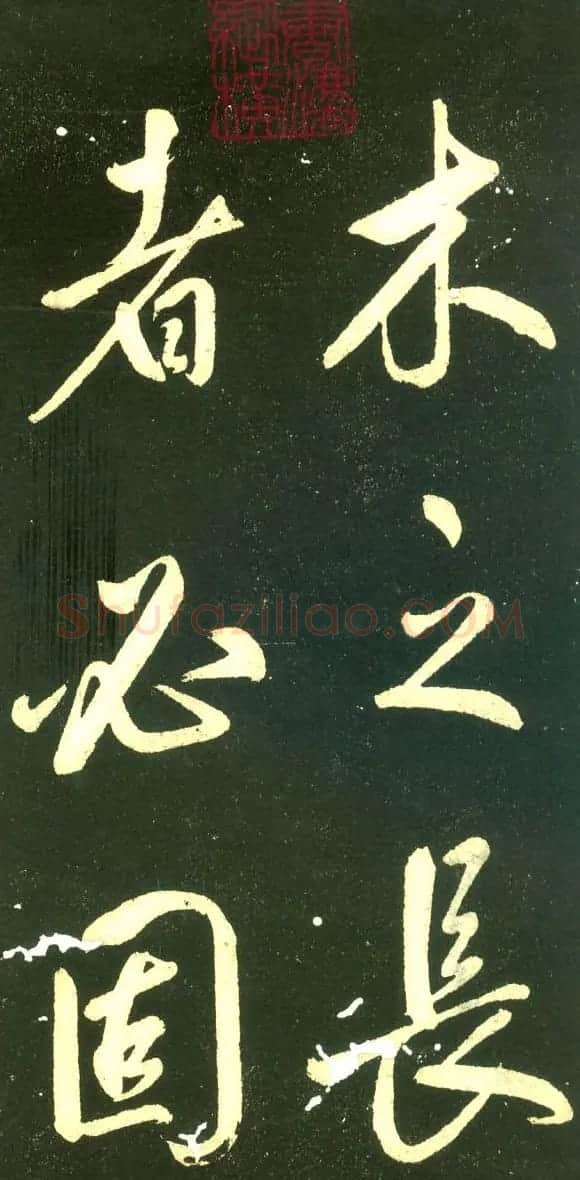 木之長
者必固
Shufaziliao.com